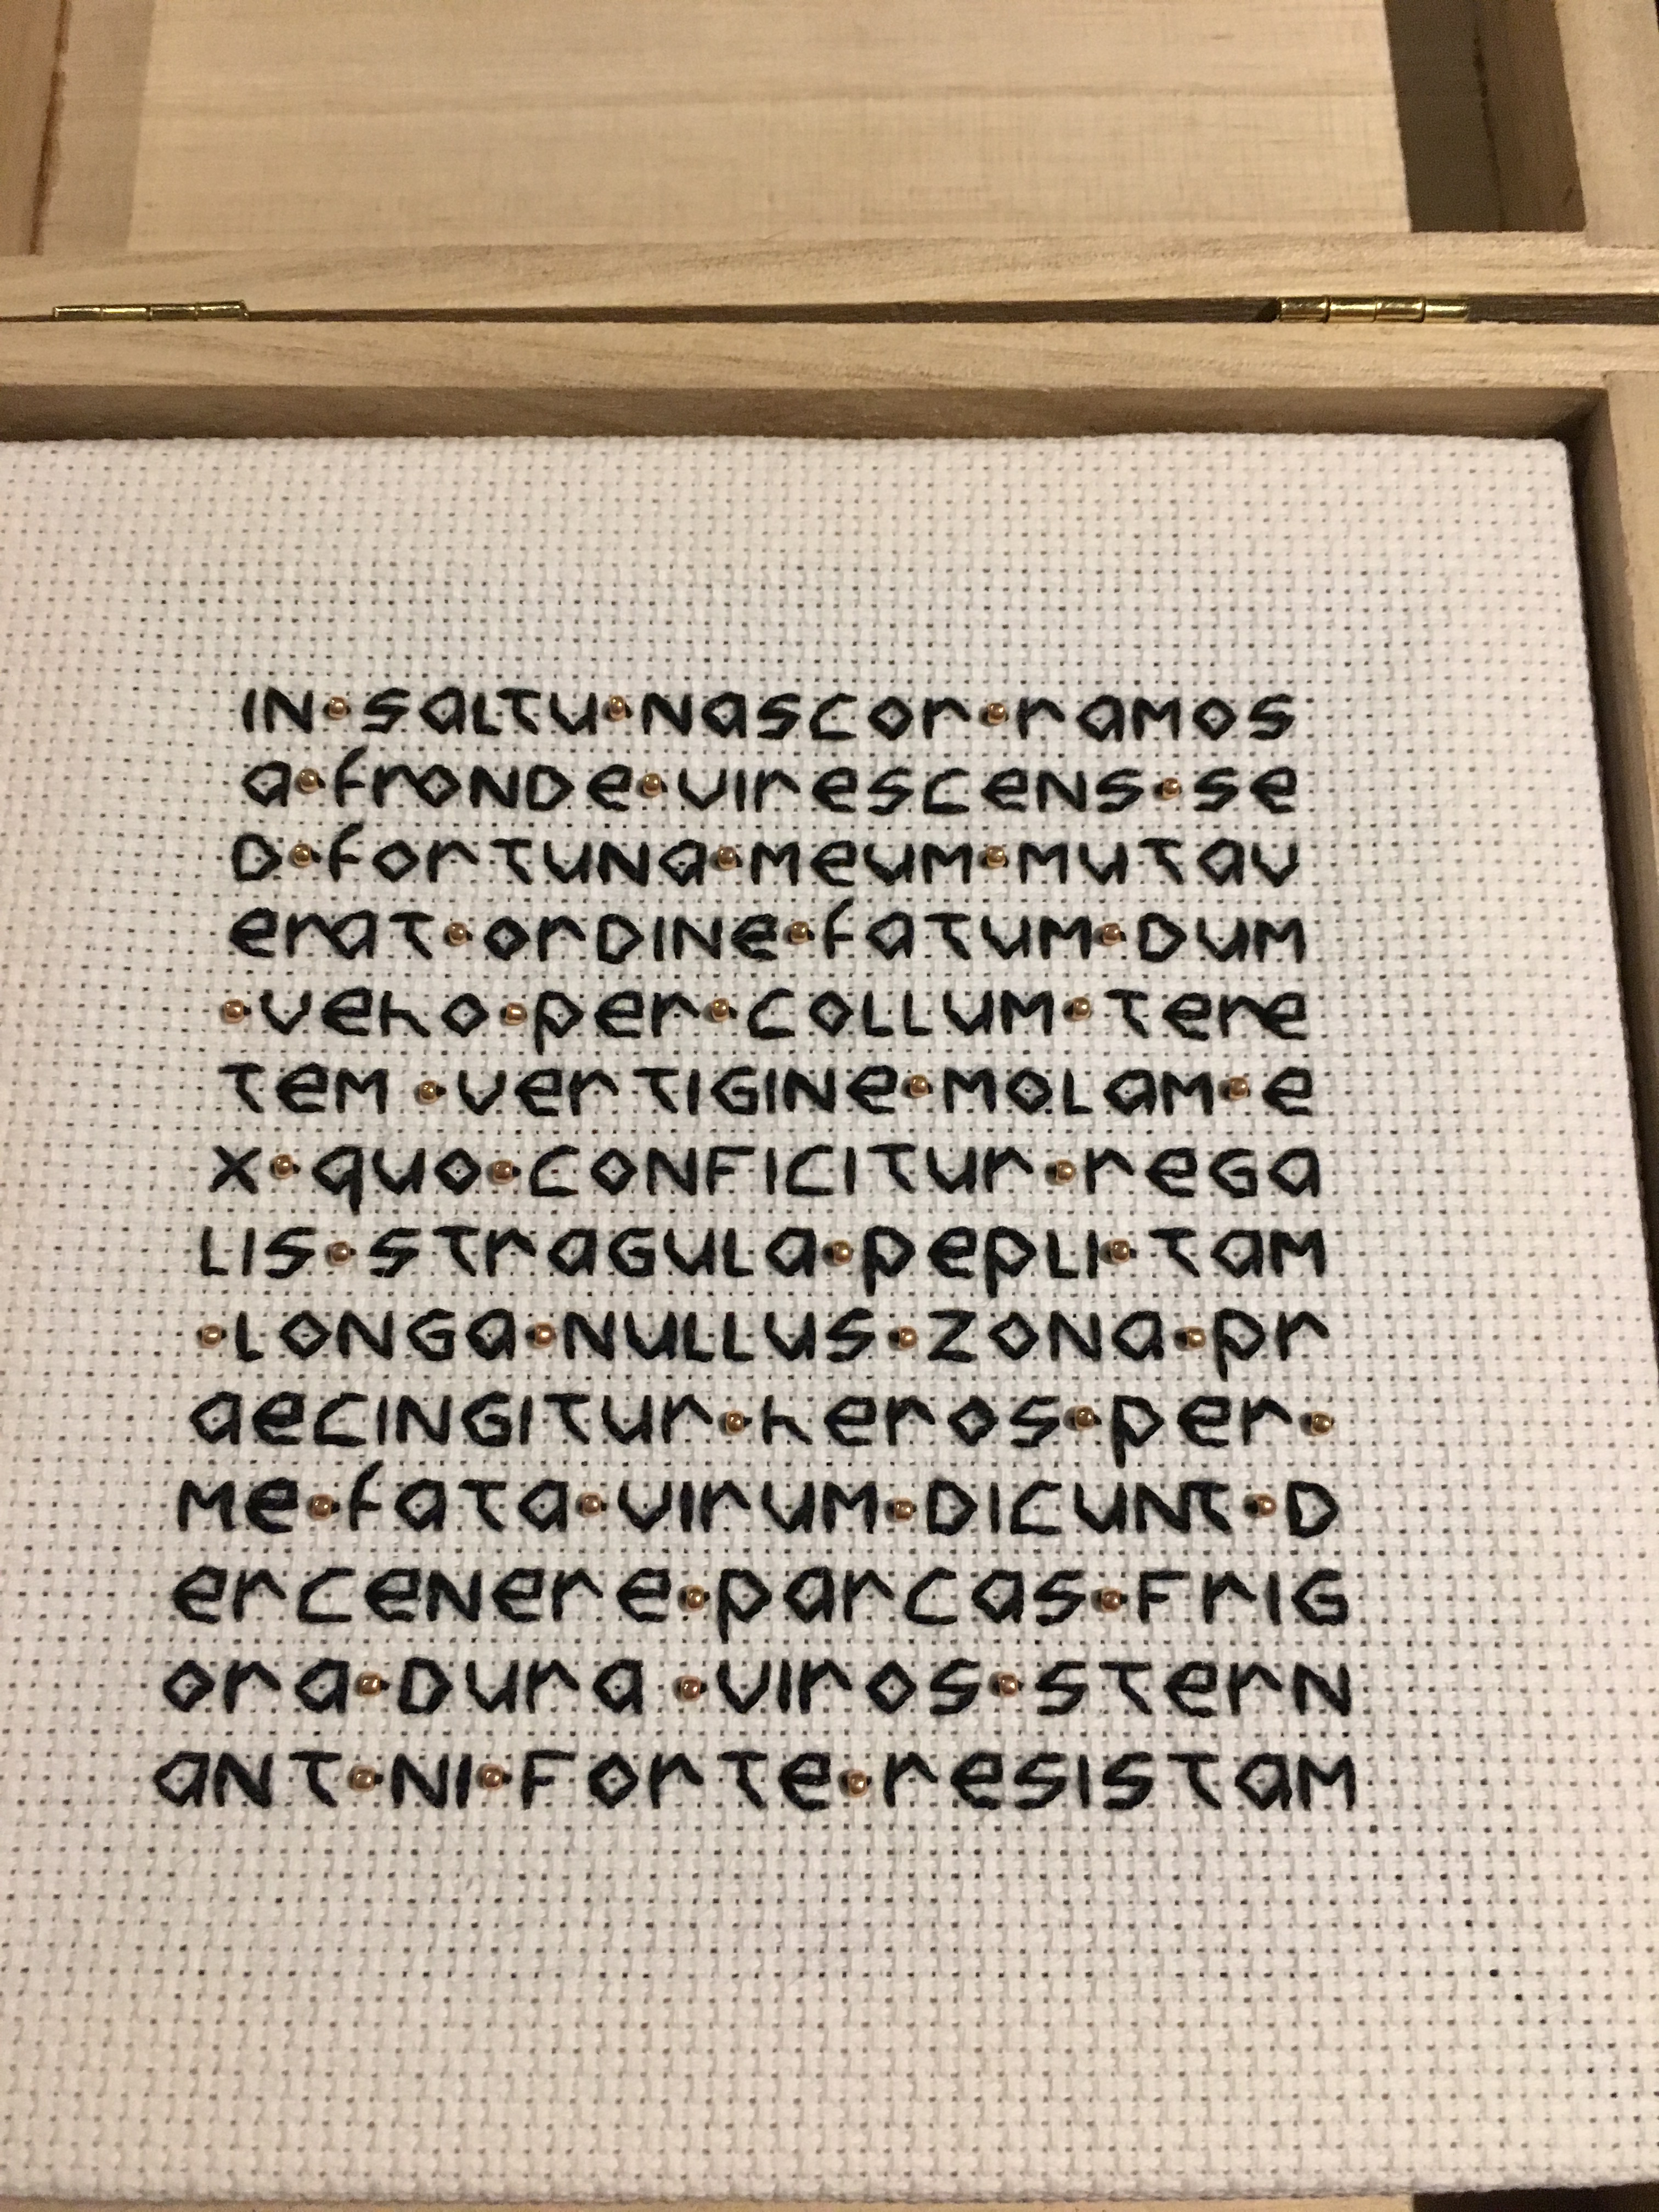 IN·SALTU·NASCOR·RAMOS
A·FRONDE·VIRESCENS·SE
D·FORTUNA·MEUM·MUTAV
ERAT·ORDINE·FATUM·DUM
·VEHO·PER·COLLUM·TERE
TEM·VERTIGINE·MOLAM·E
X·QUO·CONFICITUR·REGA
LIS·STRAGULA·PEPLI·TAM
·LONGA·NULLUS·ZONA·PR
AECINGITUR·HEROS·PER·
ME·FATA·VIRUM·DICUNT·D
ERCENERE·PARCAS·FRIG
ORA·DURA·VIROS·STERN
ANT·NI·FORTE·RESISTAM